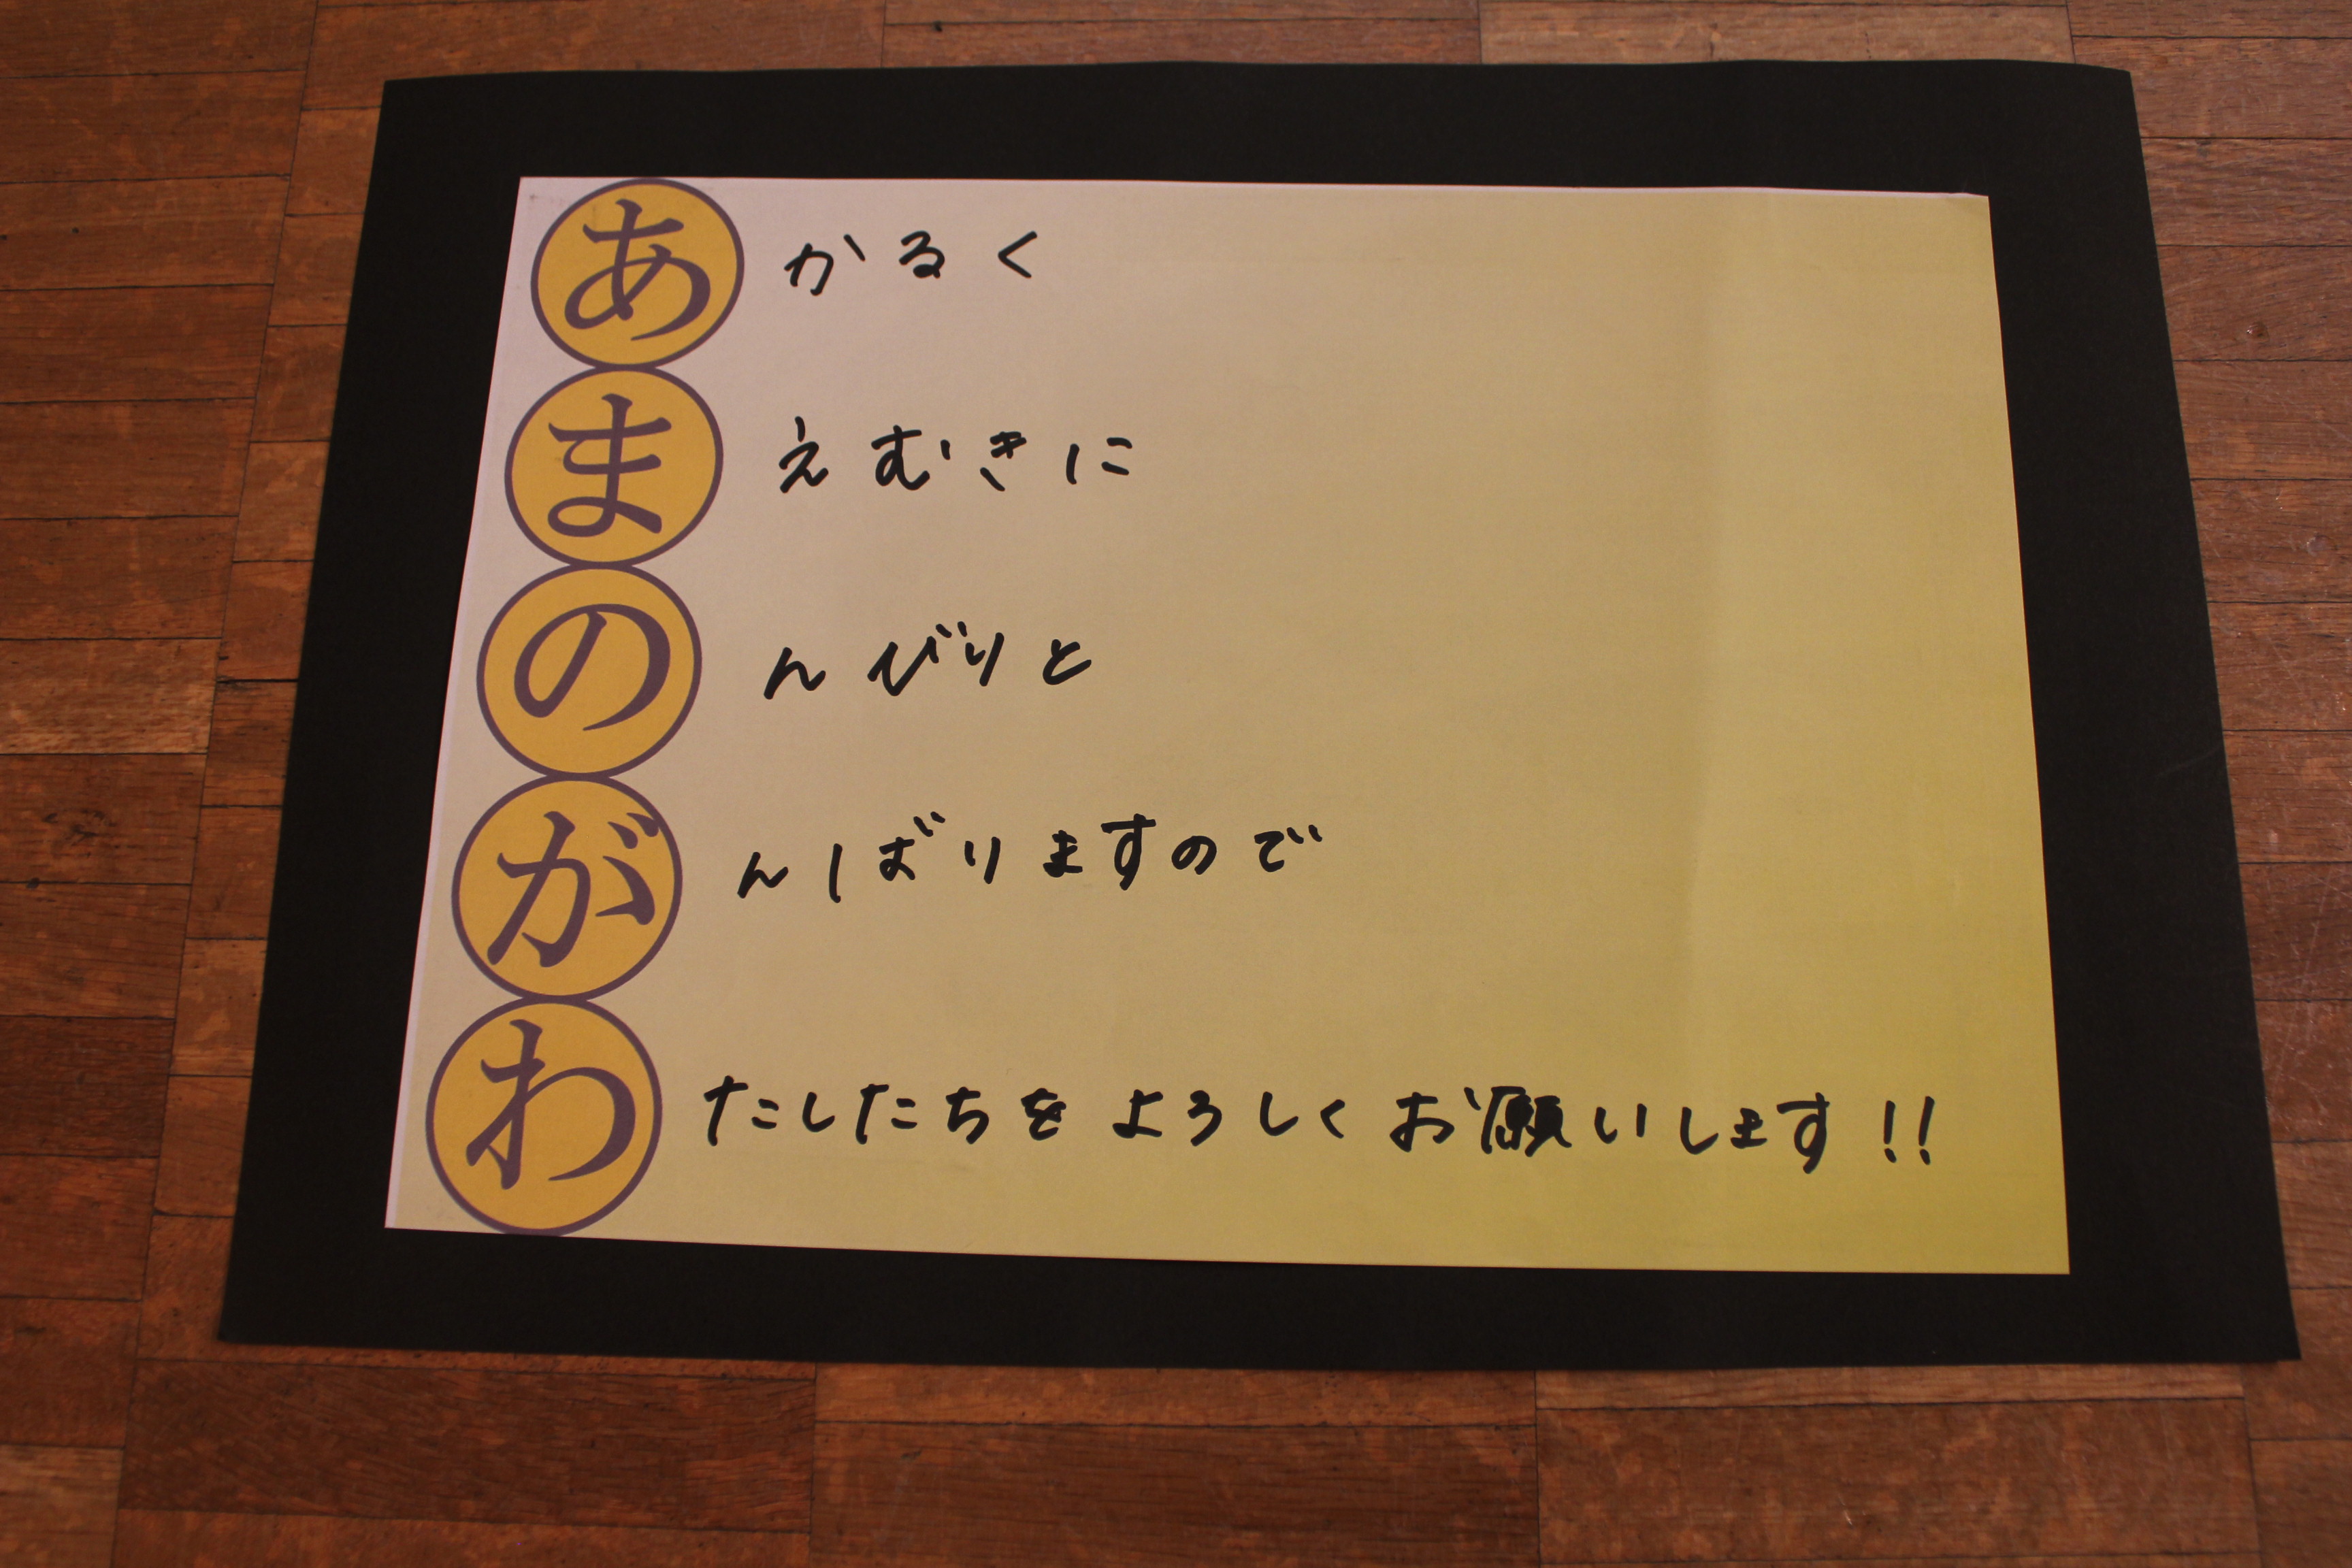 あかるく
まえむきに
のんびりと
がんばりますので
わたしたちをよろしくお願いします!!